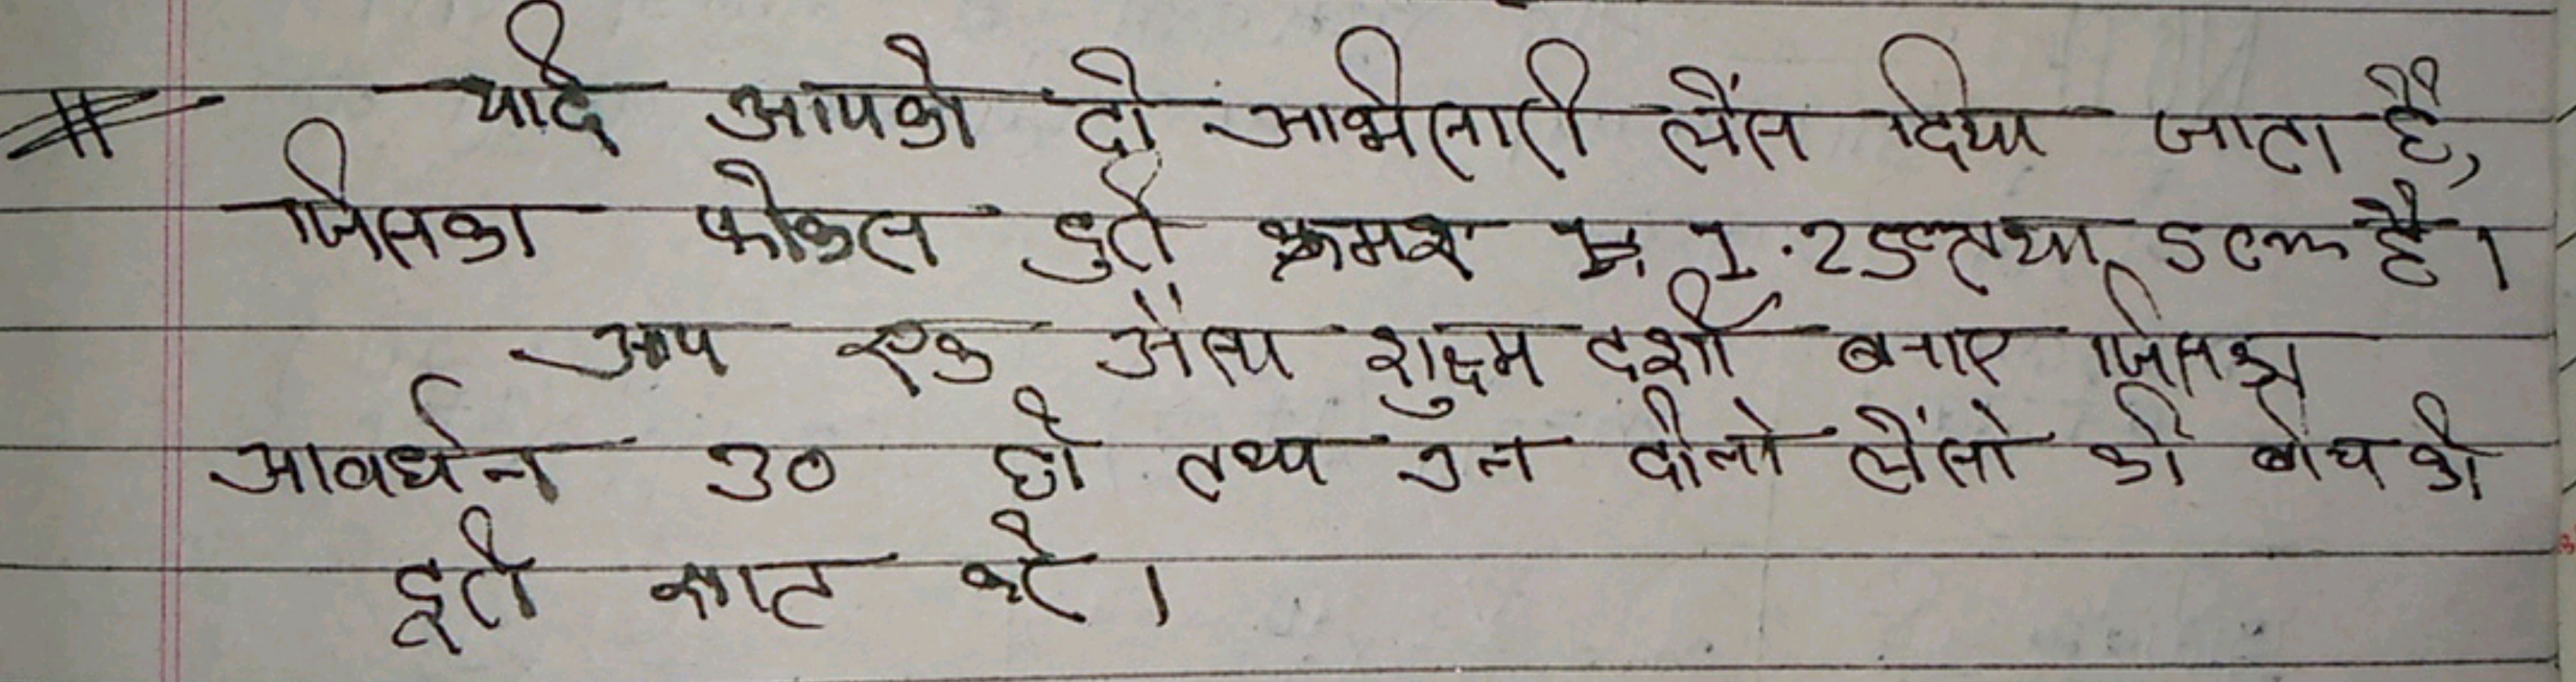 # यदि आपको दो अभिसारी लेंस दिया जाता है,
जिसका फोकस दुरी क्रमश 1.25cm तथा 5cm है।
आप एक ऐसा शुक्ष्म दर्शी बनाए जिसका
आवर्धन 30 हो तथा उन दोनो लेंसो की बीच की
दूरी ज्ञात करे।